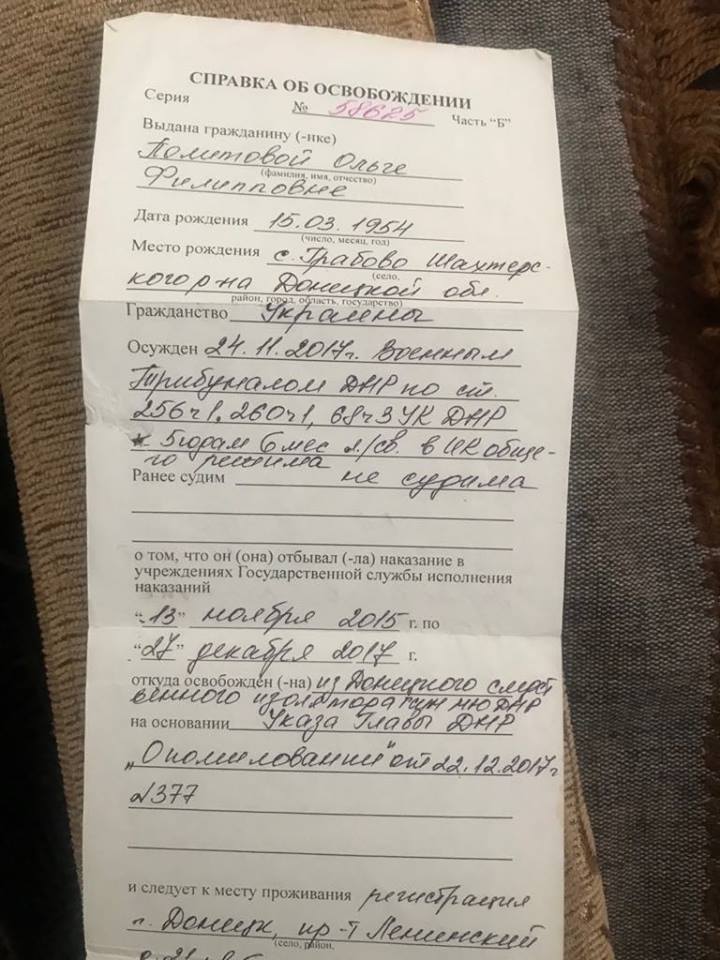 СПРАВКА ОБ ОСВОБОЖДЕНИИ
Серия № 58625 Часть "Б"
Выдана гражданину (-нке)
Политовой Ольге
(фамилия, имя, отчество)
Филипповне
Дата рождения 15.03.1954
(число, месяц, год)
Место рождения с. Грабово Шахтерс-
(село,
кого р-на Донецкой обл.
район, город, область, государство)
Гражданство Украины
Осужден 24.11.2017г. Военным
Трибуналом ДНР по ст.
256ч1, 260ч1, 68ч3 УК ДНР
к 5 годам 6 мес л/св. в ИК обще-
го режима
Ранее судим не судима
о том, что он (она) отбывал (-ла) наказание в
учреждениях Государственной службы исполнения
наказаний
"13" ноября 2015 г. по
"27" декабря 2017 г.
откуда освобожден (-на) из Донецкого следст
венного изолятора МЮ ДНР
на основании Указа Главы ДНР
"О помиловании" от 22.12.2017г
№377
и следует к месту проживания регистрация
г. Донецк, пр-т Ленинский
(село, район,